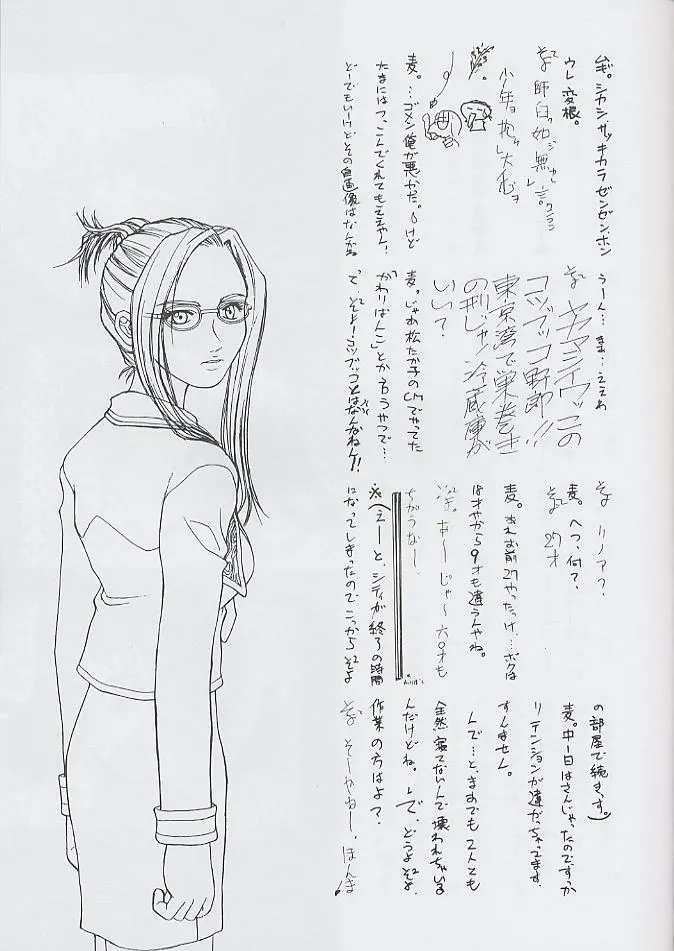 麦。シカシ、サッキカラゼンゼン、ホン
ウレ、変根。
少年ョ抱ケ大
麦。…ゴメン俺が悪かった。けど
たまにはつっこんでくれてもええやん！
どーでもいーけどその自画像はなんや。
うーん…ま…ええわ
ヤマシイウッコの
コツブッコ野郎！！
東京湾で巣巻き
の刑じゃ！冷蔵庫が
いい？
麦。じゃあ松たか子のCMでやってた
「かわりばんこ」とか言うやつで…
で、コツブッコとはなんなねん！！
リノア？
麦。へっ、何？
27才
麦。お前27やったっけ…ボクは
18才やから9才も違うんやね。
あーじゃ〜六〇才も
ちがうなー。
※(えーと、シティが終了の時間
になってしまったのでこっから
の部屋で続きっす。)
麦。中一日はさんじゃったのですっか
りテンションが違がっちゃってます。
すんません。
んで…と、まあでも2人とも
全然寝てないんで壊われちゃいる
んだけどね。で、どうよ
作業の方はよ？
そーやねー。ほんま